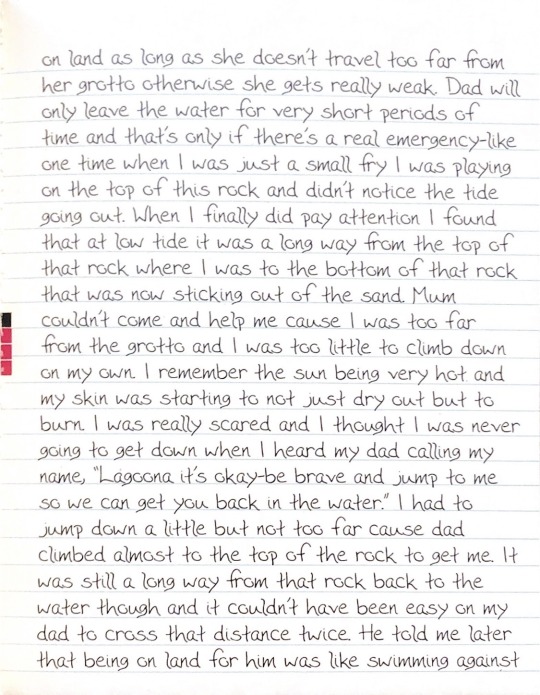 on land as long as she doesn't travel too far from
her grotto otherwise she gets really weak. Dad will
only leave the water for very short periods of
time and that's only if there's a real emergency-like
one time when I was just a small fry I was playing
on the top of this rock and didn't notice the tide
going out. When I finally did pay attention I found
that at low tide it was a long way from the top of
that rock where I was to the bottom of that rock
that was now sticking out of the sand. Mum
couldn't come and help me cause I was too far
from the grotto and I was too little to climb down
on my own. I remember the sun being very hot and
my skin was starting to not just dry out but to
burn. I was really scared and I thought I was never
going to get down when I heard my dad calling my
name, "Lagoona it's okay-be brave and jump to me
so we can get you back in the water." I had to
jump down a little but not too far cause dad
climbed almost to the top of the rock to get me. It
was still a long way from that rock back to the
water though and it couldn't have been easy on my
dad to cross that distance twice. He told me later
that being on land for him was like swimming against